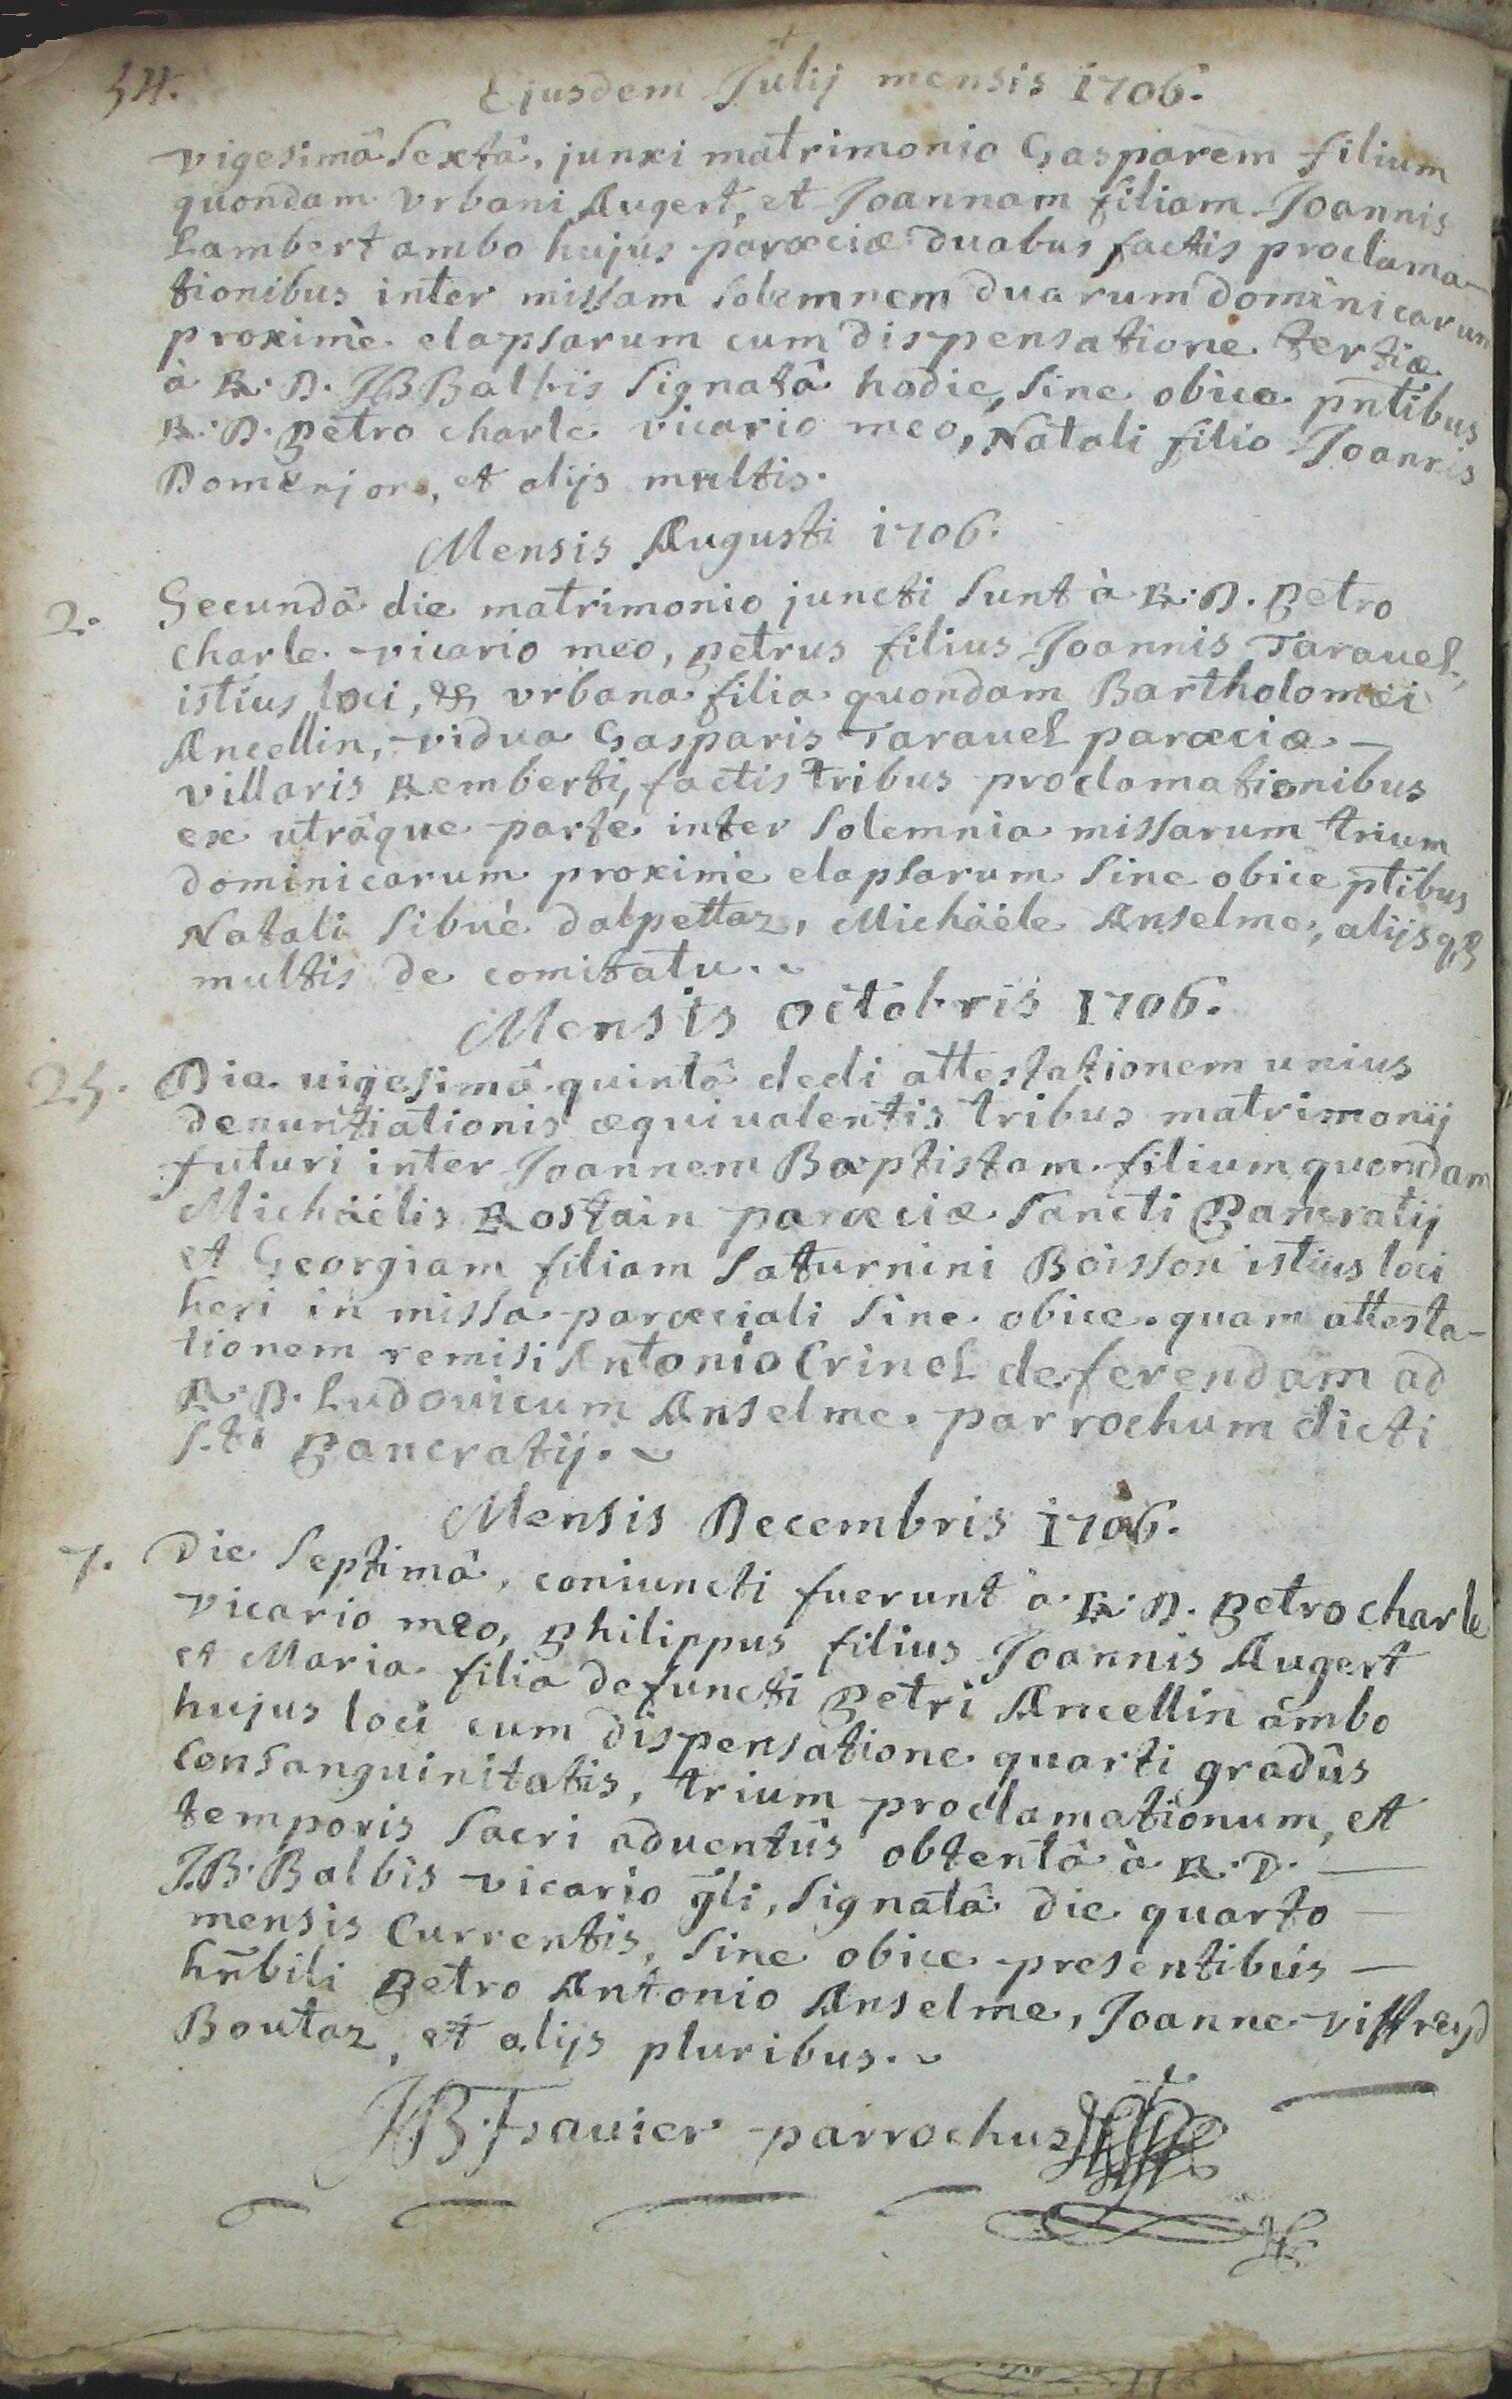 54.
Ejusdem Julij mensis 1706.
vigesimâ Sextâ, junxi matrimonio Gasparem filium
quondam Vrbani Augert, et Joannam filiam Joannis
Lambert ambo hujus parœciæ duabus factis proclama-
tionibus inter missam solemnem duarum dominicarum
proximè elapsarum cum dispensatione tertiæ
à R. D. JB Balbis signatâ hodie, sine obice pntibus
R. D. petro charle vicario meo, Natali filio Joannis
et alijs multis.
Mensis Augusti 1706.
2. Secundâ die matrimonio juncti sunt à R. D. petro
charle vicario meo, petrus filius Joannis Tarauel,
istius loci, & vrbana filia quondam Bartholomæi
Ancellin, vidua Gasparis Tarauel parœciæ -
villaris Remberti, factis tribus proclamationibus
ex utrâque parte inter solemnia missarum trium
dominicarum proximè elapsarum sine obice ptibus
Natali Sibuè dalpettaz, Michäële Anselme, alijsq3
multis de comitatu.
Mensis octobris 1706.
25. Die uigesimâ quintâ dedi attestationem unius
denuntiationis æquiualentis tribus matrimonij
futuri inter Joannem Baptistam filium quondam
Michäëlis Rostain parœciæ Sancti Pancratij
et Georgiam filiam Saturnini Boisson istius loci
heri in missa parœciali sine obice. quam attesta-
tionem remisi Antonio Crinel deferendam ad
R. D. Ludouicum Anselme parrochum dicti
S.ti pancratij.
Mensis Decembris 1706.
7. Die Septimâ, coniuncti fuerunt à R. D. petro charle
vicario meo, philippus filius Joannis Augert
et Maria filia defuncti petri Ancellin ambo
hujus loci cum dispensatione quarti gradûs
consanguinitatis, trium proclamationum, et
temporis sacri aduentûs obtentâ à R. D. -
J.B. Balbis vicario gli, signatâ die quarto -
mensis Currentis, sine obice presentibus -
hnbili petro Antonio Anselme, Joanne viffreyd
Boutaz, et alijs pluribus.
JB. Favier parrochus